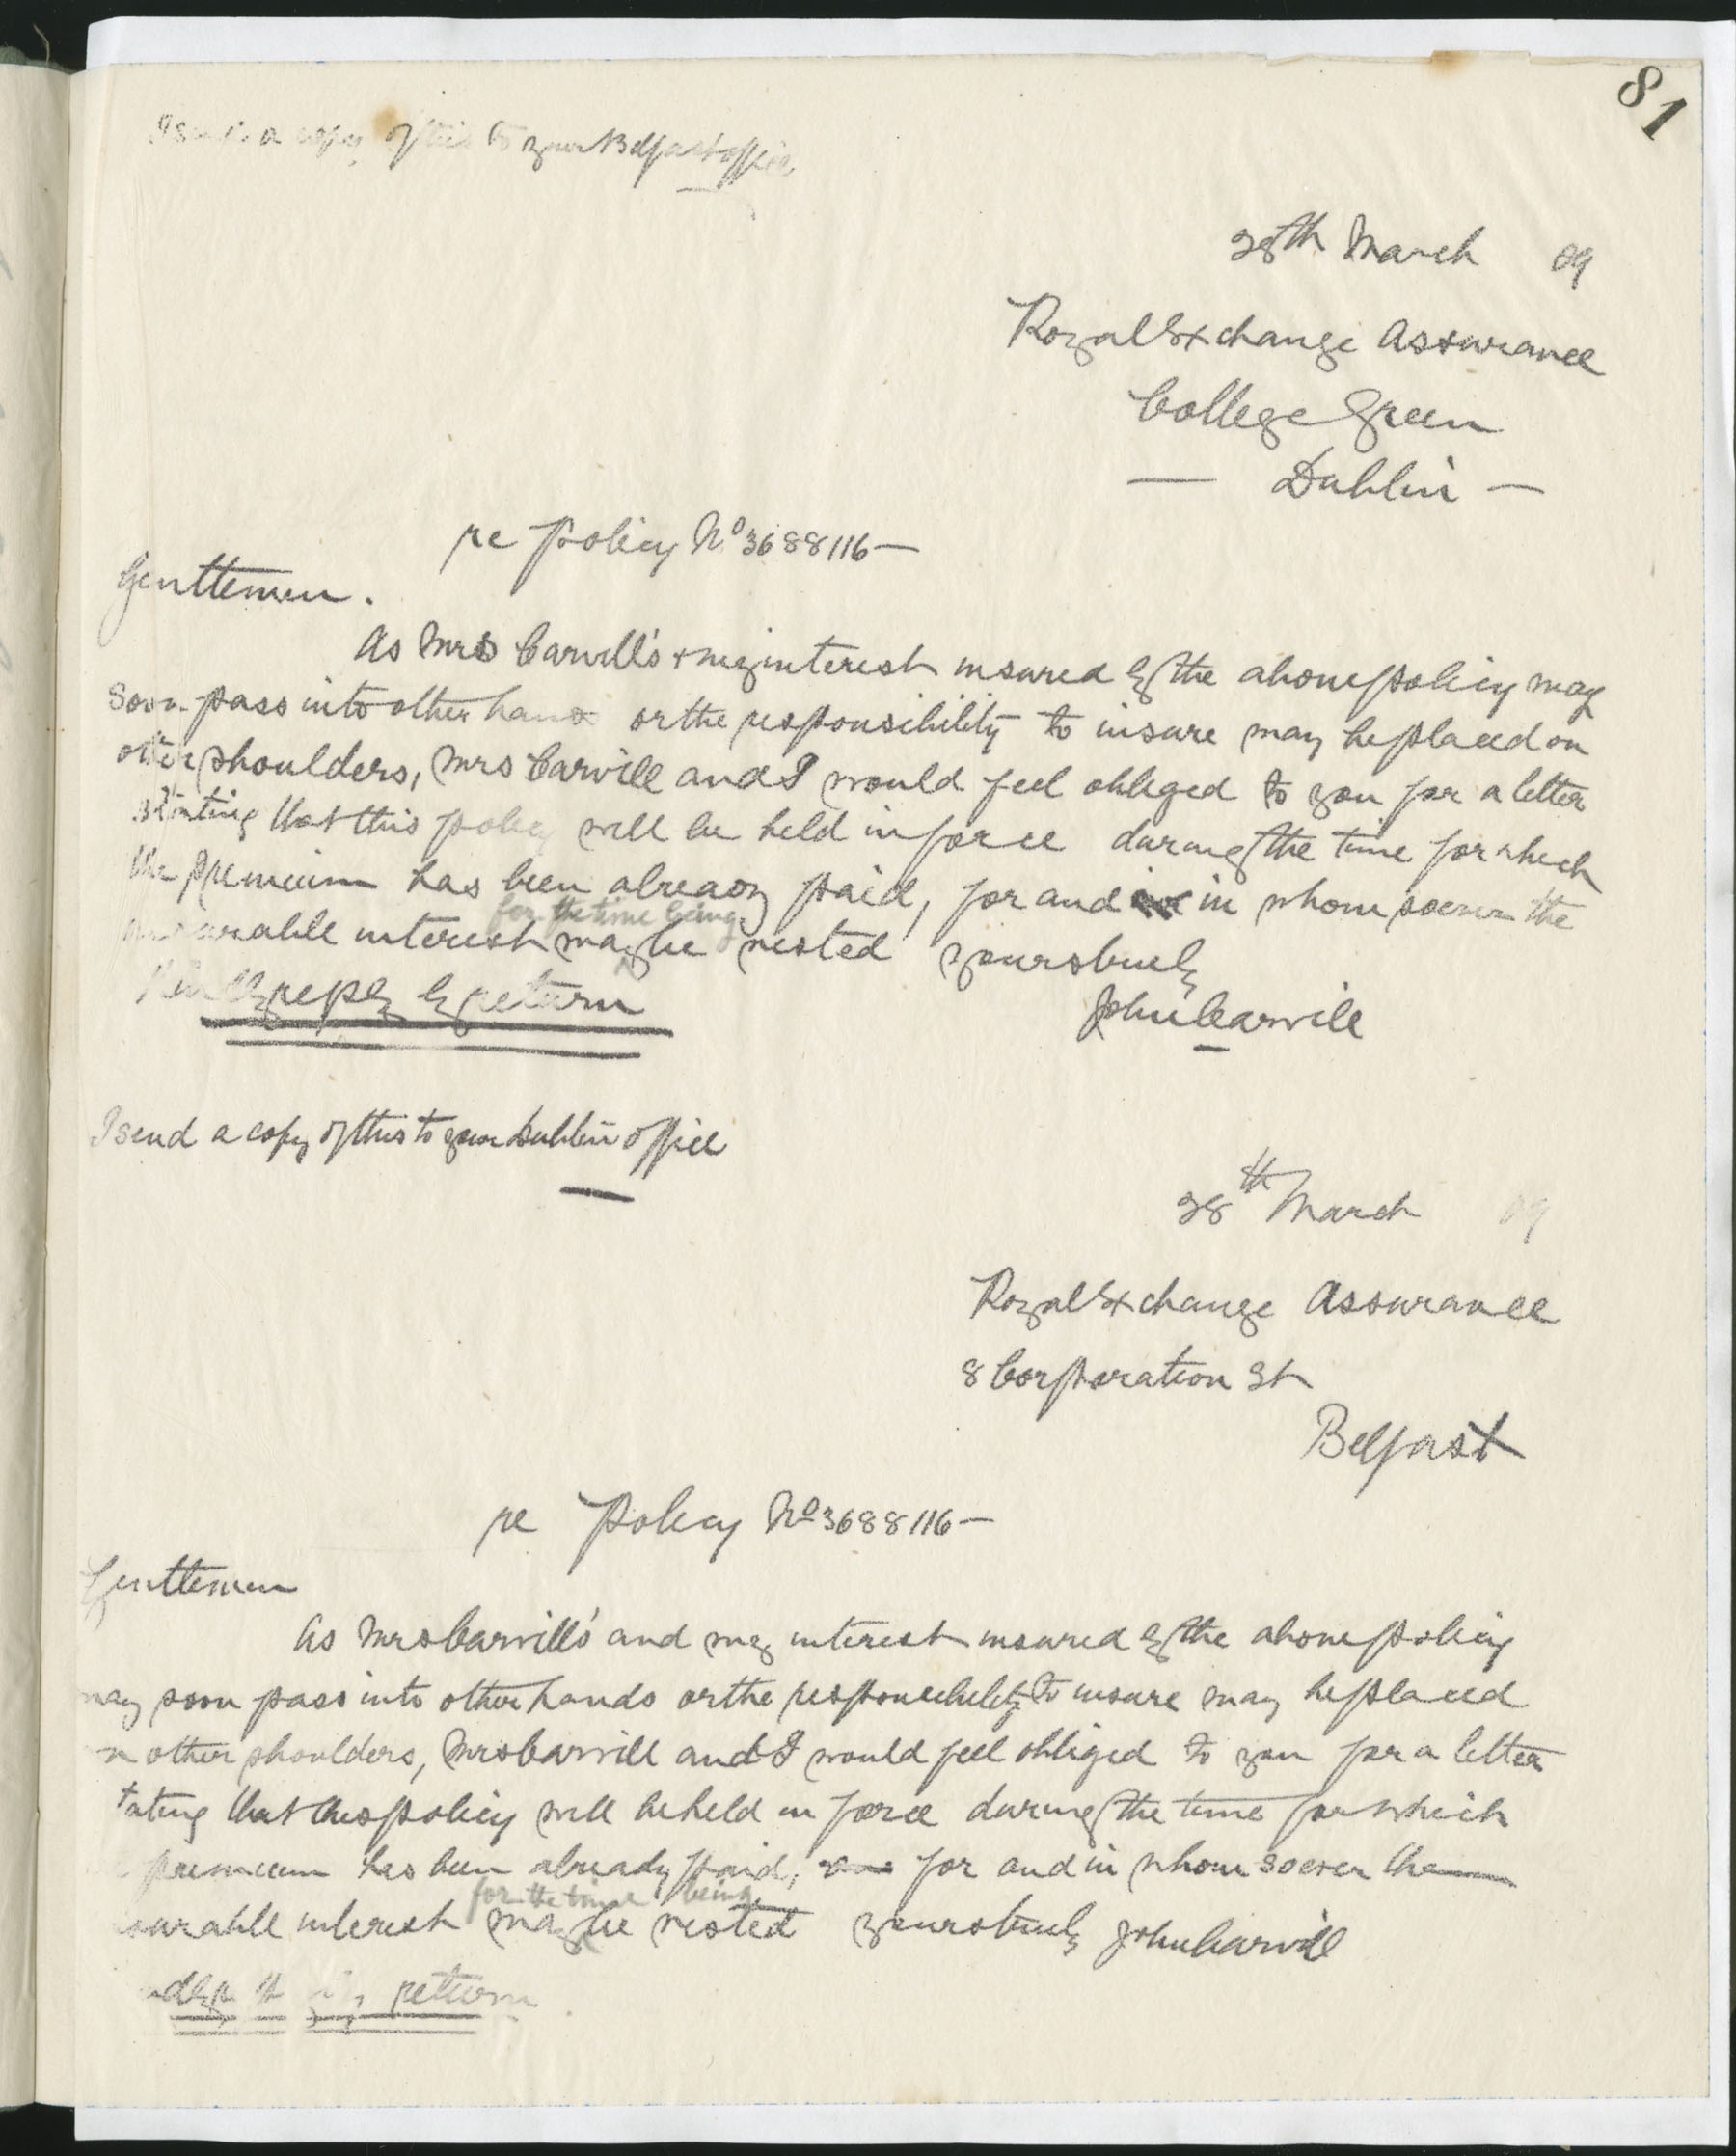 81
I send a copy of this to your Belfast office
28th March 09
Royal Exchange Assurance
College Green
— Dublin —
re Policy No 3688116—
Gentlemen.
As Mrs Carvill's + my interest insured by the above policy may
soon pass into other hands or the responsibility to insure may be placed on
other shoulders, Mrs Carvill and I would feel obliged to you for a letter
stating that this policy will be held in force during the time for which
the premium has been already paid, for and in whom soever the
for the time being
insurable interest may be vested yours truly
Kindly reply by return
John Carvill
I send a copy of this to your Dublin office
28th March 09
Royal Exchange Assurance
8 Corporation St
Belfast
re Policy No 3688116—
Gentlemen
As Mrs Carvill's and my interest insured by the above policy
may soon pass into other hands or the responsibility to insure may be placed
on other shoulders, Mrs Carvill and I would feel obliged to you for a letter
tating that this policy will be held in force during the time for which
premium has been already paid, for and in whom soever the
for the time being
surable interest may be vested yours truly John Carvill
return